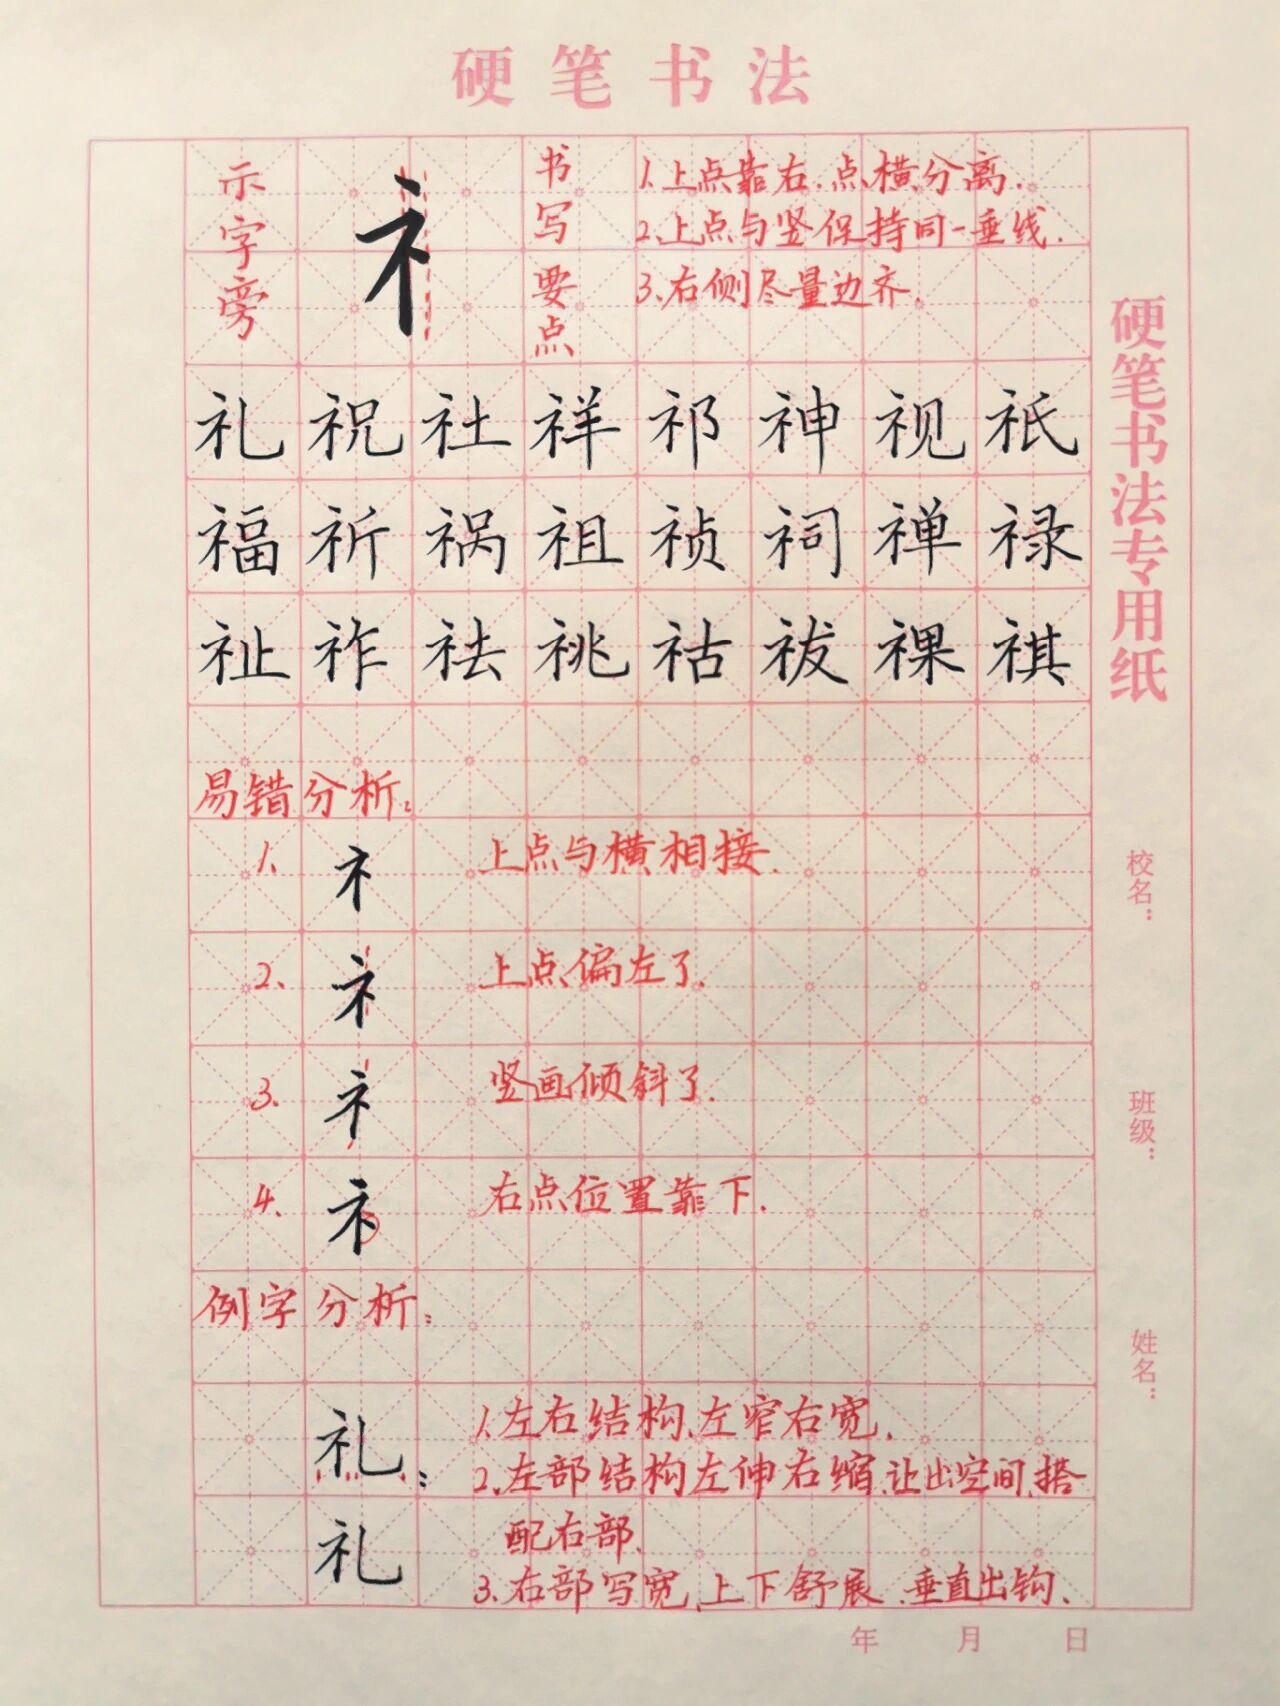 硬笔书法
示字旁
礻
书写要点
1、上点靠右、点横分离.
2、上点与竖保持同一垂线.
3、右侧尽量边齐.
礼祝社祥祁神视祇
福祈祸祖祯祠禅禄
祉祚祛祧祜祓祼祺
易错分析：
1、礻 上点与横相接.
2、礻 上点偏左了.
3、礻 竖画倾斜了.
4、礻 右点位置靠下.
例字分析：
礼： 1、左右结构、左窄右宽.
2、左部结构左伸右缩、让出空间、搭
礼 配右部.
3、右部写宽、上下舒展、垂直出钩、
硬笔书法专用纸
校名：
班级：
姓名：
年 月 日